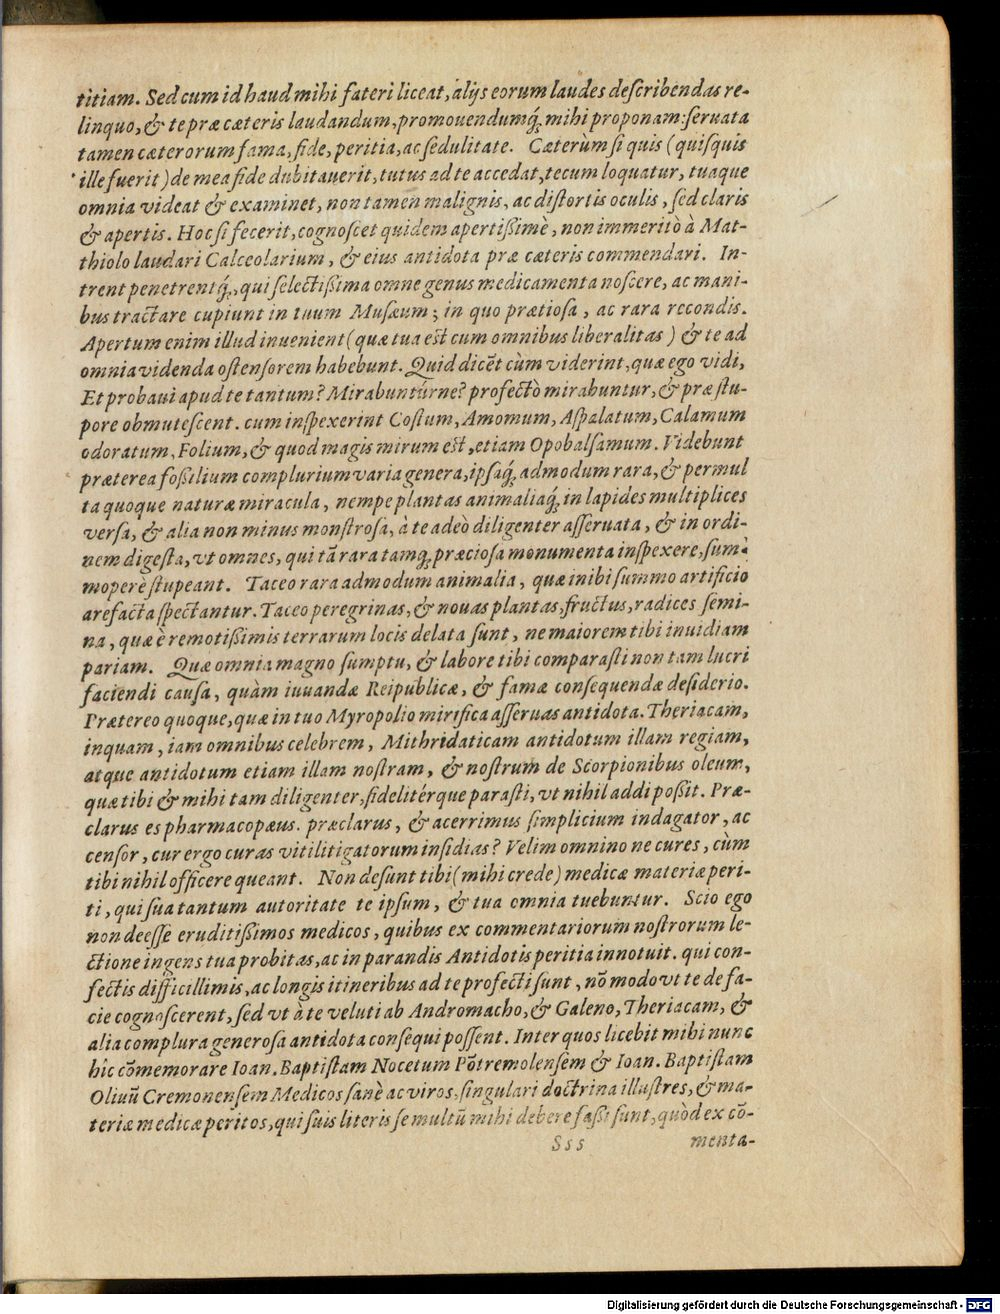 titiam. Sed cum id haud mihi fateri liceat, alijs eorum laudes deſcribendas re-
linquo, & te præ cæteris laudandum, promouendumq́; mihi proponam: ſeruata
tamen cæterorum fama, fide, peritia, ac ſedulitate. Cæterùm ſi quis (quiſquis
ille fuerit) de mea fide dubitauerit, tutus ad te accedat, tecum loquatur, tuaque
omnia videat & examinet, non tamen malignis, ac diſtortis oculis, ſed claris
& apertis. Hoc ſi fecerit, cognoſcet quidem apertißimè, non immeritò à Mat-
thiolo laudari Calceolarium, & eius antidota præ cæteris commendari. In-
trent penetrentq́;, qui ſelectißima omne genus medicamenta noſcere, ac mani-
bus tractare cupiunt in tuum Muſæum; in quo prætioſa, ac rara recondis.
Apertum enim illud inuenient (quæ tua est cum omnibus liberalitas) & te ad
omnia videnda oſtenſorem habebunt. Quid dicẽt cùm viderint, quæ ego vidi,
Et probaui apud te tantum? Mirabuntúrne? profectò mirabuntur, & præ ſtu-
pore obmuteſcent. cum inſpexerint Coſtum, Amomum, Aſpalatum, Calamum
odoratum, Folium, & quod magis mirum est, etiam Opobalſamum. Videbunt
præterea foßilium complurium varia genera, ipſaq́; admodum rara, & permul
ta quoque naturæ miracula, nempe plantas animaliaq́; in lapides multiplices
verſa, & alia non minus monſtroſa, à te adeò diligenter aſſeruata, & in ordi-
nem digeſta, vt omnes, qui tã rara tamq́; præcioſa monumenta inſpexere, ſum-
moperè ſtupeant. Taceo rara admodum animalia, quæ inibi ſummo artificio
arefacta ſpectantur. Taceo peregrinas, & nouas plantas, fructus, radices ſemi-
na, quæ è remotißimis terrarum locis delata ſunt, ne maiorem tibi inuidiam
pariam. Quæ omnia magno ſumptu, & labore tibi comparaſti non tam lucri
faciendi cauſa, quàm iuuandæ Reipublicæ, & famæ conſequendæ deſiderio.
Prætereo quoque, quæ in tuo Myropolio mirifica aſſeruas antidota. Theriacam,
inquam, iam omnibus celebrem, Mithridaticam antidotum illam regiam,
atque antidotum etiam illam noſtram, & noſtrum de Scorpionibus oleum,
quæ tibi & mihi tam diligenter, fidelitérque paraſti, vt nihil addi poßit. Præ-
clarus es pharmacopæus. præclarus, & acerrimus ſimplicium indagator, ac
cenſor, cur ergo curas vitilitigatorum inſidias? Velim omnino ne cures, cùm
tibi nihil officere queant. Non deſunt tibi (mihi crede) medicæ materiæ peri-
ti, qui ſua tantum autoritate te ipſum, & tua omnia tuebuntur. Scio ego
non deeſſe eruditißimos medicos, quibus ex commentariorum noſtrorum le-
ctione ingens tua probitas, ac in parandis Antidotis peritia innotuit. qui con-
fectis difficillimis, ac longis itineribus ad te profecti ſunt, nõ modo vt te de fa-
cie cognoſcerent, ſed vt à te veluti ab Andromacho, & Galeno, Theriacam, &
alia complura generoſa antidota conſequi poſſent. Inter quos licebit mihi nunc
hîc cõmemorare Ioan. Baptiſtam Nocetum Põtremolenſem & Ioan. Baptiſtam
Oliuũ Cremonenſem Medicos ſanè ac viros, ſingulari doctrina illuſtres, & ma-
teriæ medicæ peritos, qui ſuis literis ſe multũ mihi debere faßi ſunt, quòd ex cõ-
Sss menta-
Digitalisierung gefördert durch die Deutsche Forschungsgemeinschaft - DFG